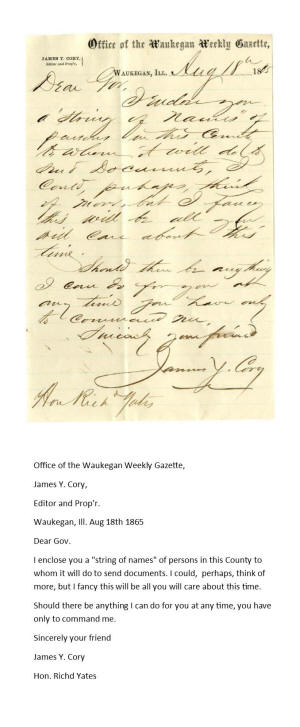 Office of the Waukegan Weekly Gazette,
JAMES Y. CORY,
Editor and Prop'r,
WAUKEGAN, ILL. Aug 18th 1865
Dear Gov.
I enclose you
a "string of names" of
persons in this County
to whom it will do to
send Documents, I
could, perhaps, think
of more, but I fancy
this will be all you
will care about this
time.
Should there be anything
I can do for you at
any time you have only
to command me,
Sincerely your friend
James Y. Cory
Hon Richd Yates
Office of the Waukegan Weekly Gazette,
James Y. Cory,
Editor and Prop'r.
Waukegan, Ill. Aug 18th 1865
Dear Gov.
I enclose you a "string of names" of persons in this County to
whom it will do to send documents. I could,  perhaps, think of
more, but I fancy this will be all you will care about this time.
Should there be anything I can do for you at any time, you have
only to command me.
Sincerely your friend
James Y. Cory
Hon. Richd Yates